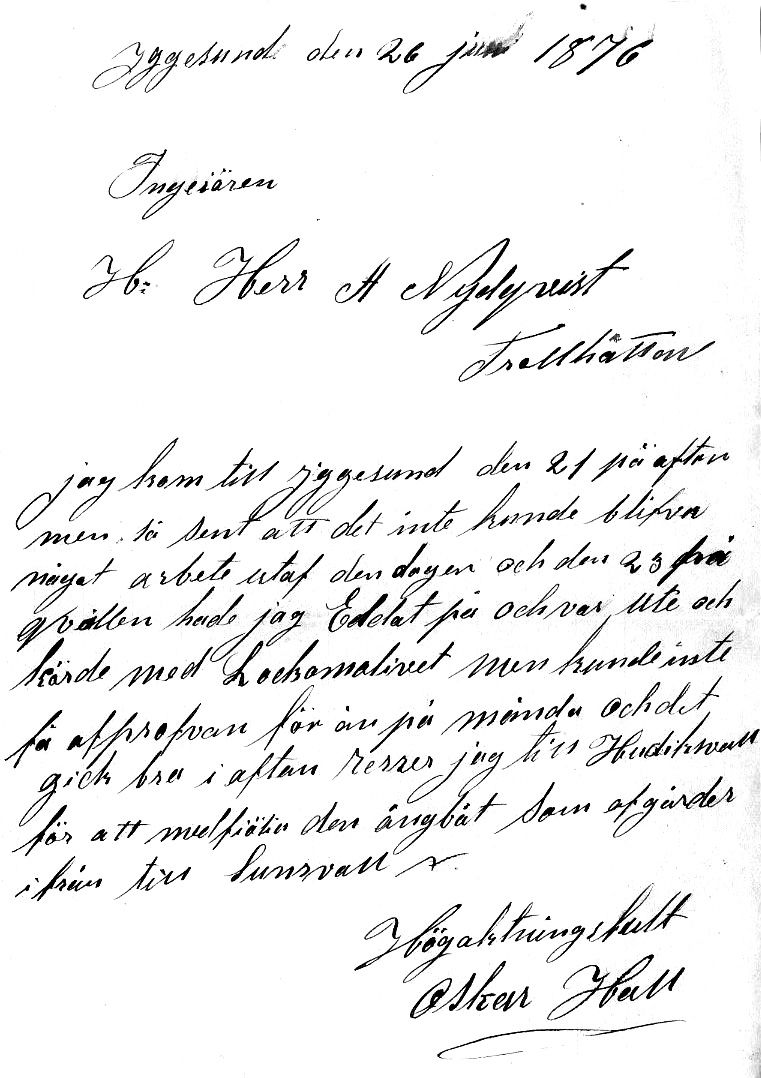 Iggesund den 26 juni 1876
Ingeiören
Hr Herr A Nydqvist
Trollhättan
jag kom till iggesund den 21 på aftan
men så sent att det inte kunde blifva
något arbete utaf den dagen och den 23 på
qvällen hade jag Eldat på och var ute och
körde med Lockomotivet men kunde inte
få afprofvan för än på månda och det
gick bra i aftan resser jag till Hudiksvall
för att medfiölia den ångbåt som afgårder
ifrån till Sunsvall
Högaktningsfullt
Oskar Hall